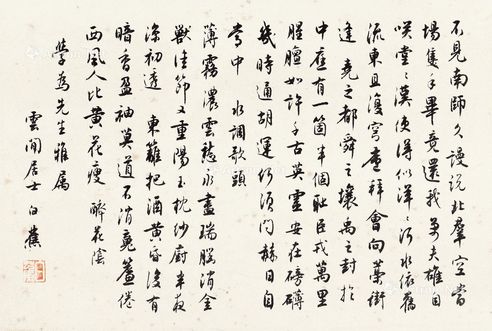 不見南師久謾説北羣空當
場隻手畢竟還我萬夫雄自
嘆堂〻漢使得似洋〻河水依舊
流東且復穹廬拜會向藁街
逢堯之都舜之壤禹之封於
中應有一箇半個恥臣戎萬里
腥膻如許千古英靈安在磅礴
幾時通胡運何須問赫日自
當中 水調歌頭
薄霧濃雲愁永晝瑞腦消金
獸佳節又重陽玉枕紗廚半夜
涼初透 東籬把酒黃昏後有
暗香盈袖莫道不消魂簾捲
西風人比黃花瘦 醉花陰
學為先生雅屬
雲間居士白蕉